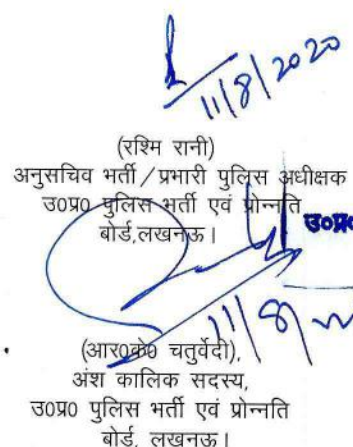 11/8/2020
(रश्मि रानी)
अनुसचिव भर्ती/प्रभारी पुलिस अधीक्षक
उ0प्र0 पुलिस भर्ती एवं प्रोन्नति
बोर्ड,लखनऊ।
उ0प्र0
11/8/
(आर0के0 चतुर्वेदी),
अंश कालिक सदस्य,
उ0प्र0 पुलिस भर्ती एवं प्रोन्नति
बोर्ड, लखनऊ।